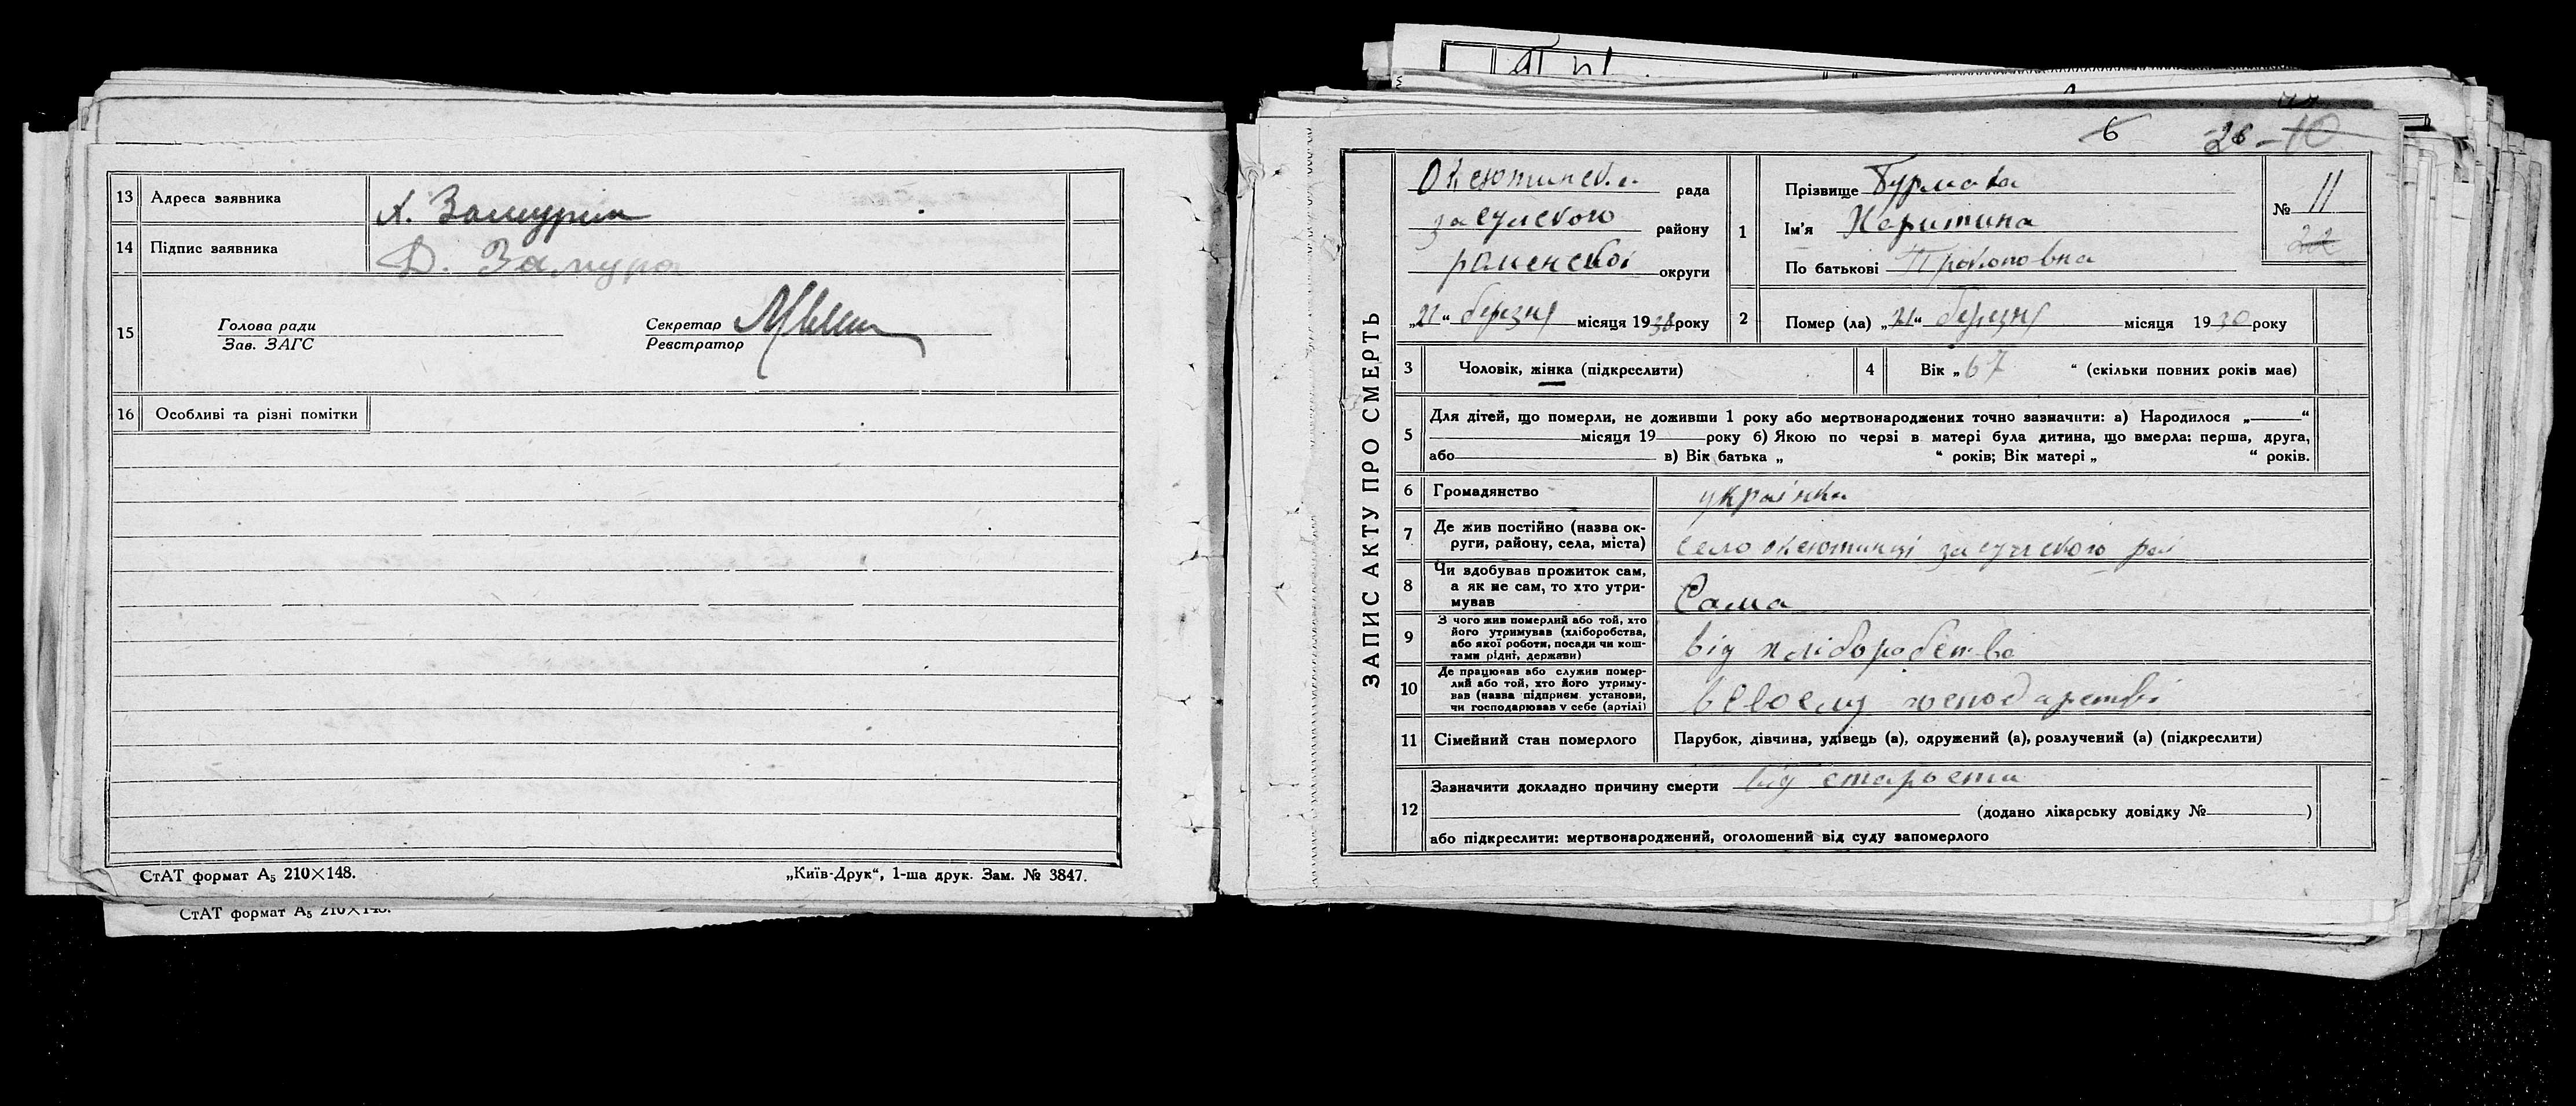 13 Адреса заявника х. Замурин
14 Підпис заявника Д. Замура
15 Голова ради Секретар
Зав. ЗАГС Реєстратор
16 Особливі та різні помітки
СтАТ формат А5 210×148. „Київ-Друк“, 1-ша друк. Зам. № 3847.
СтАТ формат А5 210×148.
6 26 – 10
ЗАПИС АКТУ ПРО СМЕРТЬ
Оксютинська рада
засулского району
роменської округи
„21“ березня місяця 1930 року
1 Прізвище Бурмака
Ім'я Харитина
По батькові Прокоповна
№ 11
22
2 Помер (ла) „21“ березня місяця 1930 року
3 Чоловік, жінка (підкреслити)
4 Вік „67 “ (скільки повних років має)
5 Для дітей, що померли, не доживши 1 року або мертвонароджених точно зазначити: а) Народилося „ “
місяця 19 року б) Якою по черзі в матері була дитина, що вмерла: перша, друга,
або в) Вік батька „ “ років; Вік матері „ “ років.
6 Громадянство українка
7 Де жив постійно (назва ок-
руги, району, села, міста) село оксютинці засулского рай
8 Чи здобував прожиток сам,
а як не сам, то хто утри-
мував Сама
9 З чого жив померлий або той, хто
його утримував (хліборобства,
або якої роботи, посади чи кош-
тами рідні, держави) від хліборобства
10 Де працював або служив помер-
лий або той, хто його утриму-
вав (назва підприєм. установи,
чи господарював у себе (артілі) в своєму
11 Сімейний стан померлого Парубок, дівчина, удівець (а), одружений (а), розлучений (а) (підкреслити)
12 Зазначити докладно причину смерти від старости
(додано лікарську довідку № )
або підкреслити: мертвонароджений, оголошений від суду запомерлого